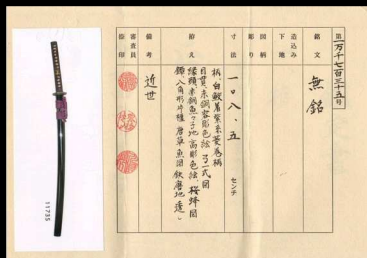 第一万千七百三十五号
銘文 無銘
造込み
下地
図柄
彫り
寸法 一〇八、五 センチ
拵え 柄、白鮫着紫糸菱巻柄
目貫、赤銅容彫色絵 弓一式図
縁頭、赤銅魚々子地高彫色絵、桜蜂図
鐔、八角形 唐草魚図 鉄磨地透し
備考 近世
審査員
捺印
11735